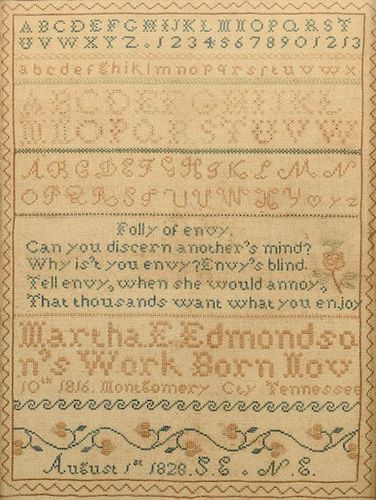 ABCDEFGHIJKLMNOPQRST
UVWXYZ.12345678901213
abcdefghiklmnopqrsſtuvwx
ABCDEFGHIKL
MNOPQRSTUVW
ABCDEFGHIKLMN
OPQRSTUVWXYyz
Folly of envy.
Can you discern another's mind?
Why is't you envy? Envy's blind.
Tell envy, when she would annoy,
That thousands want what you enjoy
Martha E. Edmondso
n's Work Born Nov
10th 1816. Montgomery Cty Tennessee
August 1st 1828. S.E. N.E.